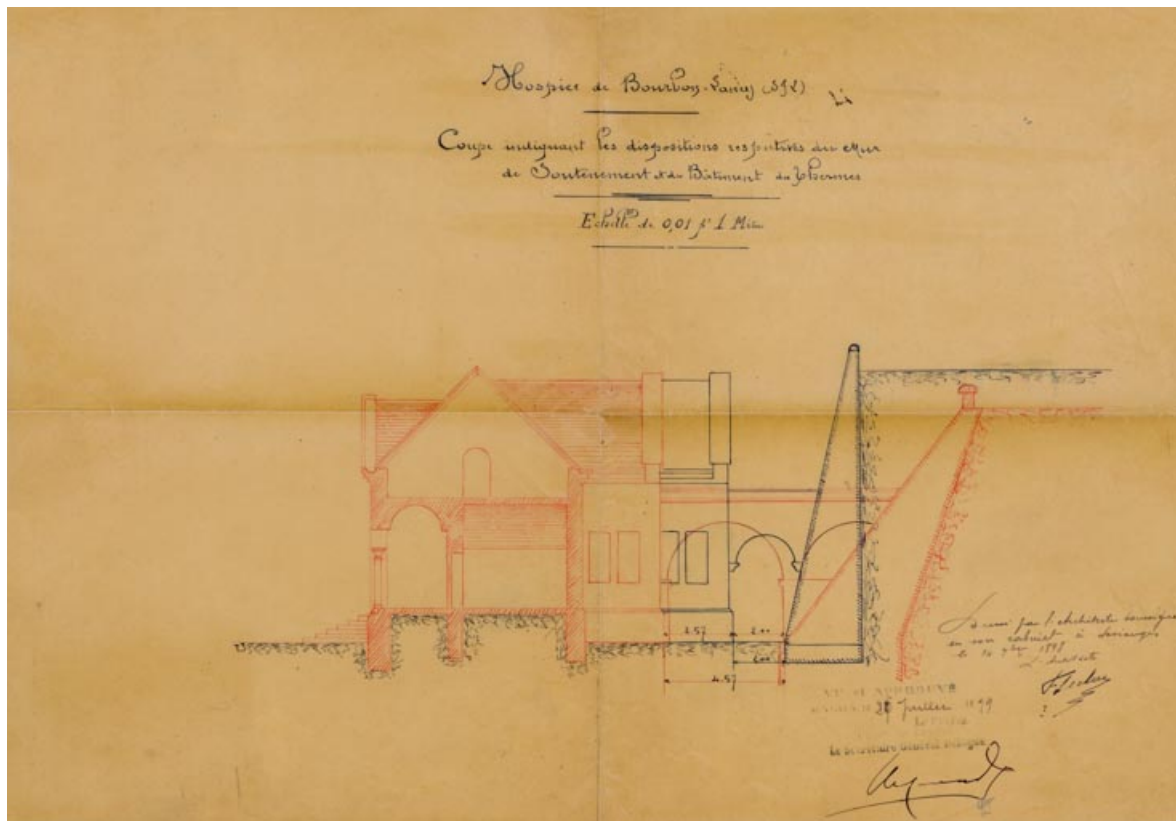 Hospice de Bourbon-Lancy (S&L)
Coupe indiquant les dispositions respectives du Mur
de Soutènement et du Bâtiment des Thermes
Echelle de 0,01 pr 1 Mètre
2.57
2.00
2.00
4.57
Dressé par l'Architecte soussigné
en son cabinet à
le 14 9bre 1898
L'Architecte
VU ET APPROUVÉ
28 Juillet 1899
Le Secrétaire Général délégué